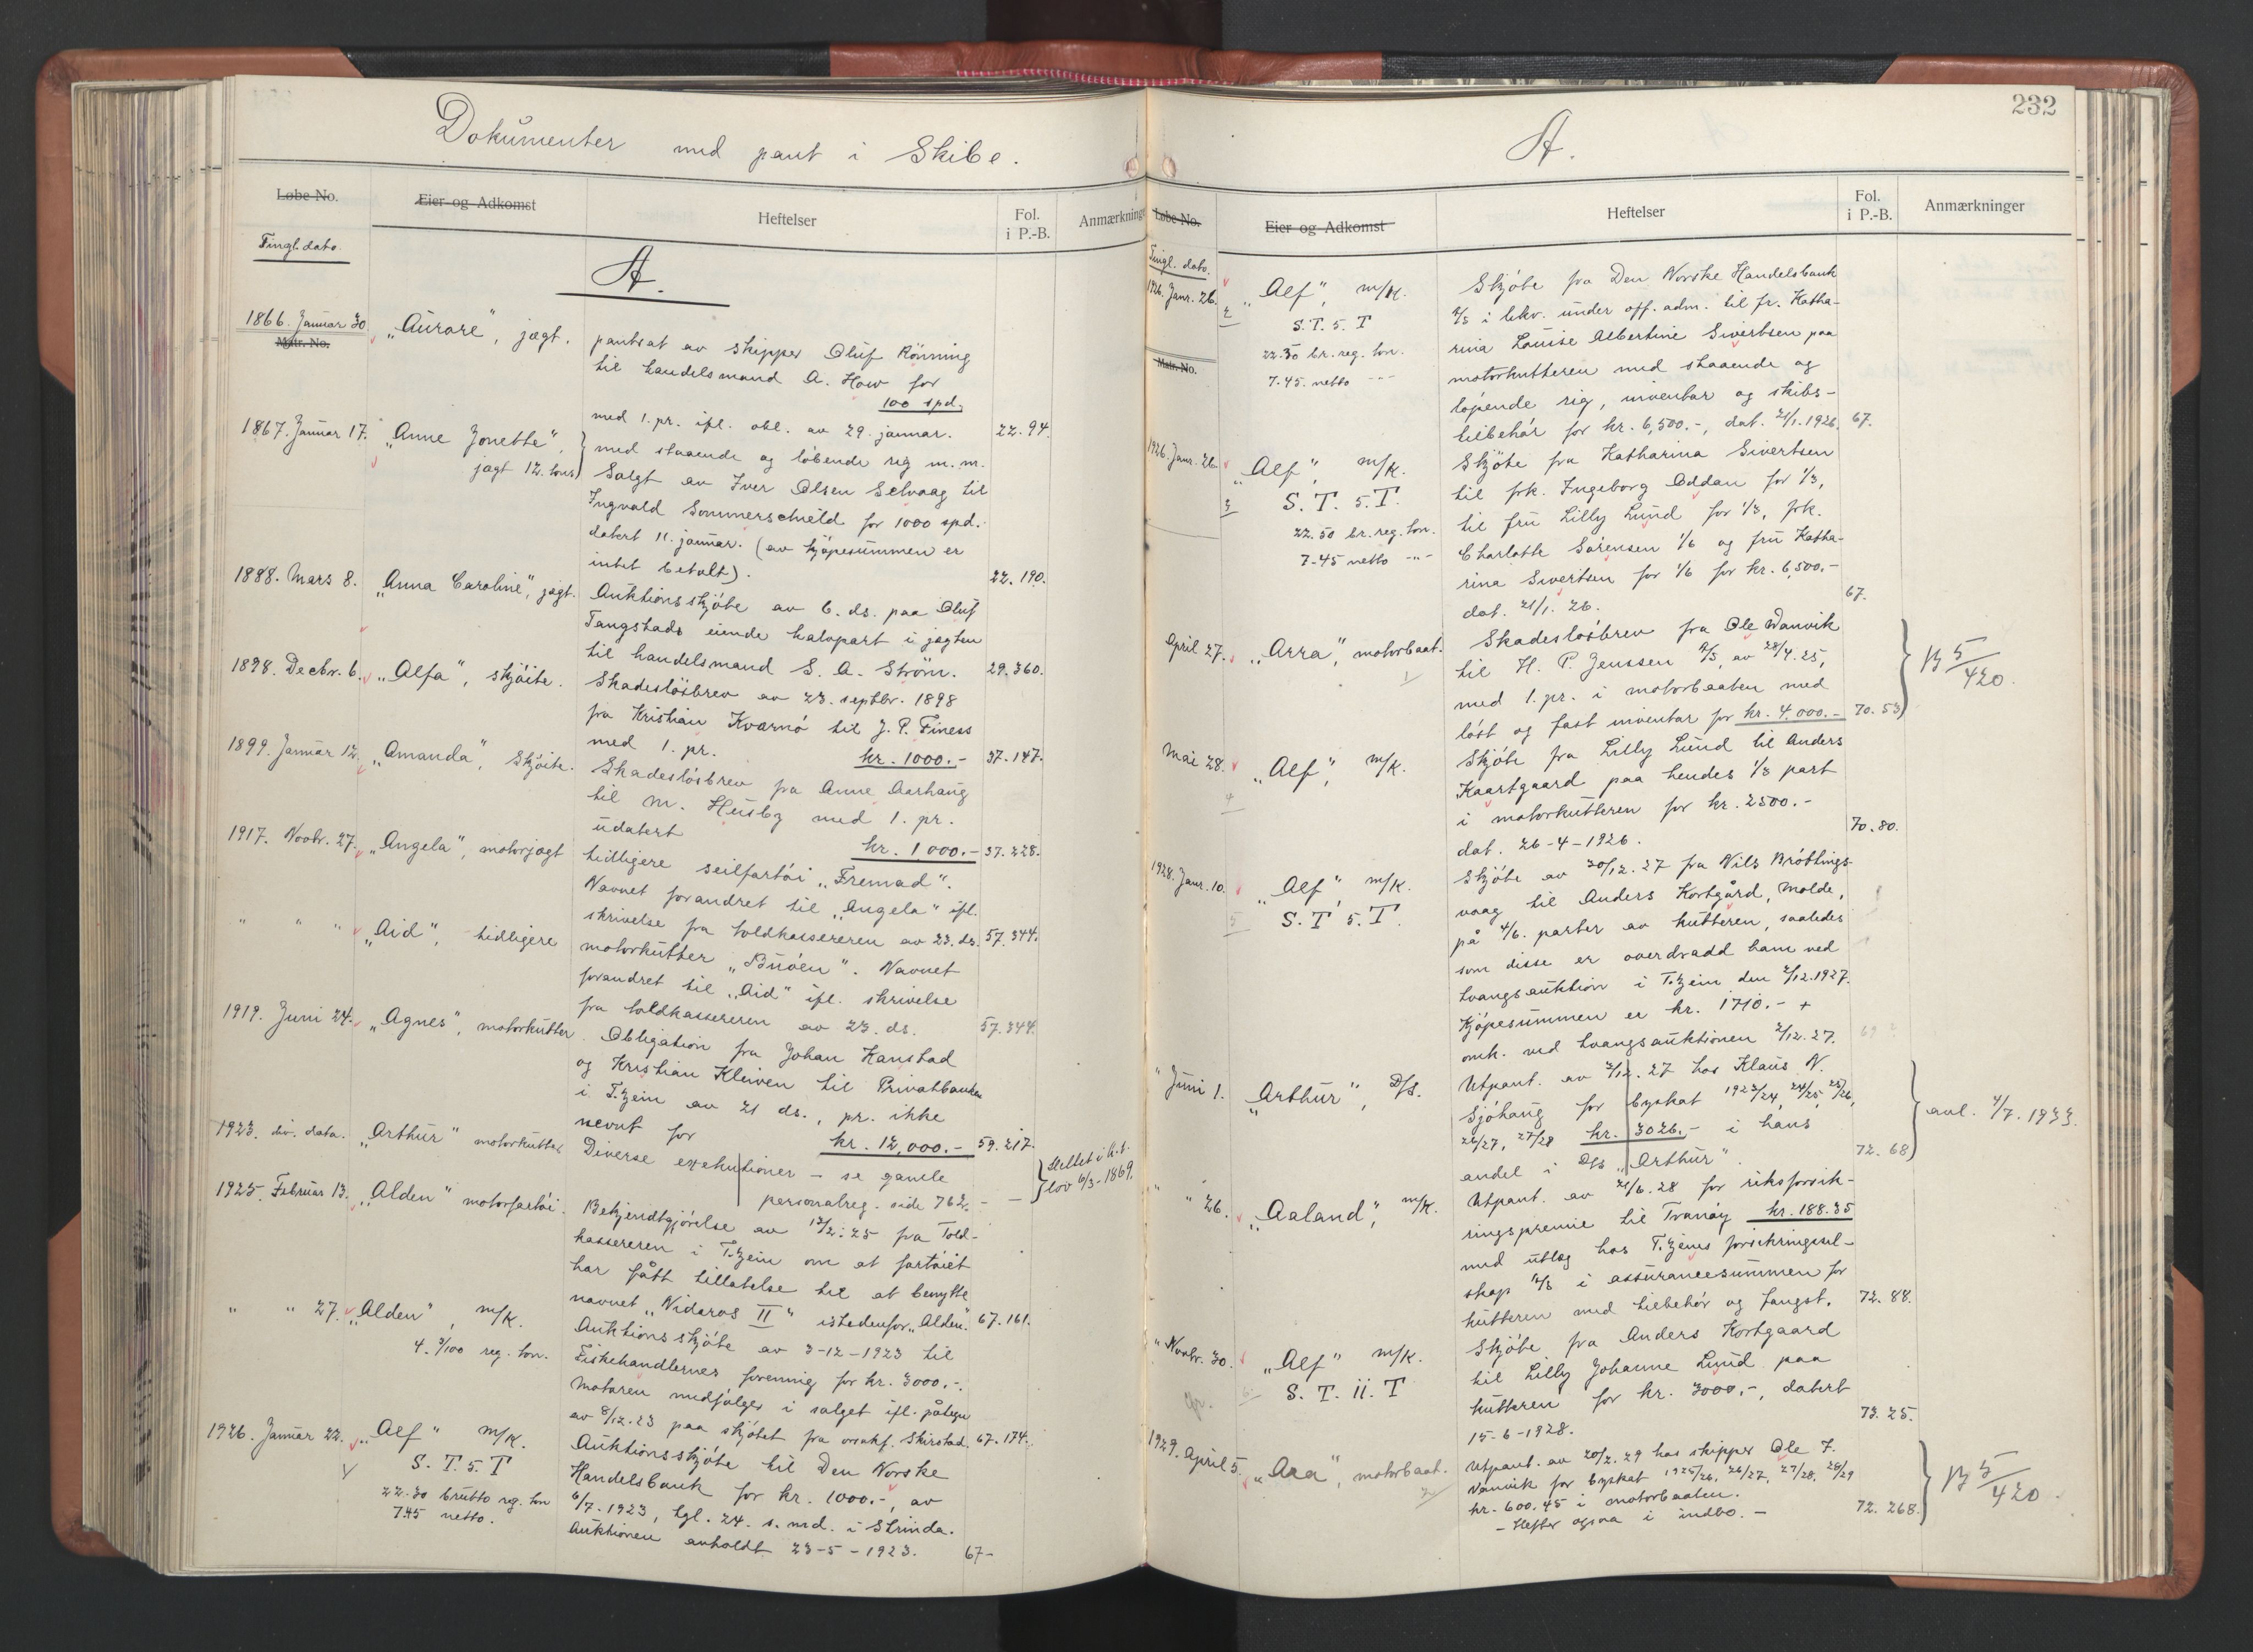 Dokumenter med pant i Skibe.
Løbe-No.
Eier og Adkomst
Heftelser
Fol. i P.-B.
Anmærkninger
Tingl. dato.
A.
1866. Januar 30
Matr. No.
"Aurore", jagt.
pantsat av skipper Oluf Rønning
til handelsmand A. How for
100 spd.
med 1. pr. ifl. obl. av 29. januar.
22.94.
1867. Januar 17.
"Anne Jonette",
jagt 12. tons
med staaende og løbende rig m. m.
Solgt av Iver Olsen Selvaag til
Ingvald Sommerschield for 1000 spd.
datert 11. januar. (av kjøpesummen er
intet betalt).
22.190.
1888. Mars 8.
"Anna Caroline", jagt.
Auktionsskjøte av 6. ds. paa Oluf
Tangstads eiende halvpart i jagten
til handelsmand S. A. Strøm.
29.360.
1898. Decbr. 6.
"Alfa", skjøite.
Skadesløsbrev av 23. septbr. 1898
fra Kristian Kvarnø til J. P. Finess
med 1. pr.
kr. 1000.-
37.147.
1899. Januar 12.
"Amanda", Skjøite.
Skadesløsbrev fra Anne Aarhaug
til M. Husby med 1. pr.
udatert
kr. 1000.-
37.228.
1917. Novbr. 27.
"Angela", motorjagt
tidligere seilfartøi "Fremad".
Navnet forandret til "Angela" ifl.
skrivelse fra toldkassereren av 23. ds.
57.344.
" " "
"Aid", tidligere
motorkutter "Buøen". Navnet
forandret til "Aid" ifl. skrivelse
fra toldkassereren av 23. ds.
57.344.
1919. Juni 24.
"Agnes", motorkutter.
Obligation fra Johan Kanstad
og Kristian Kleiven til Privatbanken
i T.hjem av 21 ds., pr. ikke
nevnt for
kr. 12,000.-
59.217.
1923. div. data.
"Arthur" motorkutter
Diverse exekutioner - se gamle
personalreg. side 762. - -
Slettet i h. t.
lov 6/3-1869.
1925. Februar 13.
"Alden" motorfartøi.
Bekjendtgjørelse av 12/2.25 fra Told-
kassereren i T.hjem om at fartøiet
har fått tillatelse til at benytte
navnet "Nidaros II" istedenfor "Alden".
67.161.
" " 27.
"Alden", m/k.
4. 3/100 reg. ton.
Auktionsskjøte av 3-12-1923 til
Fiskehandlernes forening for kr. 3000.-.
Motoren medfølger i salget ifl. påtegn
av 8/12.23 paa skjøtet fra Skirstad.
67.174.
1926. Januar 22.
"Alf" m/k.
S. T. 5. T
22.30 brutto reg. ton
7.45 netto.
Auktionsskjøte til Den Norske
Handelsbank for kr. 1000.-, av
6/7.1923, tgl. 24. s. md. i Strinda.
Auktionen avholdt 23-5-1923.
67-
232
A.
Løbe-No.
Eier og Adkomst
Heftelser
Fol. i P.-B.
Anmærkninger
Tingl. dato.
1926. Janr. 26.
2
Matr. No.
"Alf", m/k.
S.T. 5. T
22.50 br. reg. ton.
7.45. netto -"-
Skjøte fra Den Norske Handelsbank
A/S i likv. under off. adm. til fr. Katha-
rina Louise Albertine Sivertsen paa
motorkutteren med staaende og
løpende rig, inventar og skibs-
tilbehør for kr. 6,500.-, dat. 21/1.1926.
67.
1926. Janr. 26.
3
"Alf", m/k.
S. T. 5. T.
22.50 br. reg. ton.
7.45 netto -"-
Skjøte fra Katharina Sivertsen
til frk. Ingeborg Oddan for 1/3,
til fru Lilly Lund for 1/3, frk.
Charlotte Sørensen 1/6 og fru Katha-
rina Sivertsen for 1/6 for kr. 6,500.-
dat. 21/1. 26.
67.
April 27.
"Arra", motorbaat.
1
Skadesløsbrev fra Ole Vanvik
til H. P. Jenssen A/S, av 28/4.25,
med 1. pr. i motorbaaten med
løst og fast inventar for kr. 4.000.-
70.53
5/420.
Mai 28.
4
"Alf", m/k.
Skjøte fra Lilly Lund til Anders
Kaartgaard paa hendes 1/3 part
i motorkutteren for kr. 2500.-
dat. 26-4-1926.
70.80.
1928. Janr. 10.
5
"Alf", m/k.
S. T. 5. T.
Skjøte av 30/12.27 fra Nils Brøttings-
vaag til Anders Kortgård, Molde,
på 4/6. parter av kutteren, saaledes
som disse er overdradd ham ved
tvangsauktion i T.hjem den 2/12.1927.
Kjøpesummen er kr. 1710.- +
omk. ved tvangsauktionen 2/12.27.
69
" Juni 1.
"Arthur", D/s.
Utpant. av 7/12.27 hos Klaus N.
Sjøhaug for byskat 1923/24, 24/25, 25/26,
26/27, 27/28 kr. 3026.- i hans
andel i D/s "Arthur".
72.68
avl. 4/7.1933.
" " 26.
"Aaland", m/k.
Utpant. av 21/6.28 for riksforsik-
ringspremie til Tranøy kr. 188.35
med utlæg hos T.hjems forsikringssel-
skap A/S i assurancesummen for
kutteren med tilbehør og fangst.
72.88.
" Novbr. 30.
6
"Alf" m/k.
S. T. 11. T
Skjøte fra Anders Kortgaard
til Lilly Johanne Lund paa
kutteren for kr. 3000.-, datert
15-6-1928.
73.25.
1929. April 5.
"Ara", motorbaat.
2
Utpant. av 20/2.29 hos skipper Ole F.
Vanvik for byskat 1925/26, 26/27, 27/28, 28/29
kr. 600.45 i motorbaaten.
- Hefter ogsaa i indbo. -
72.268.
5/420.